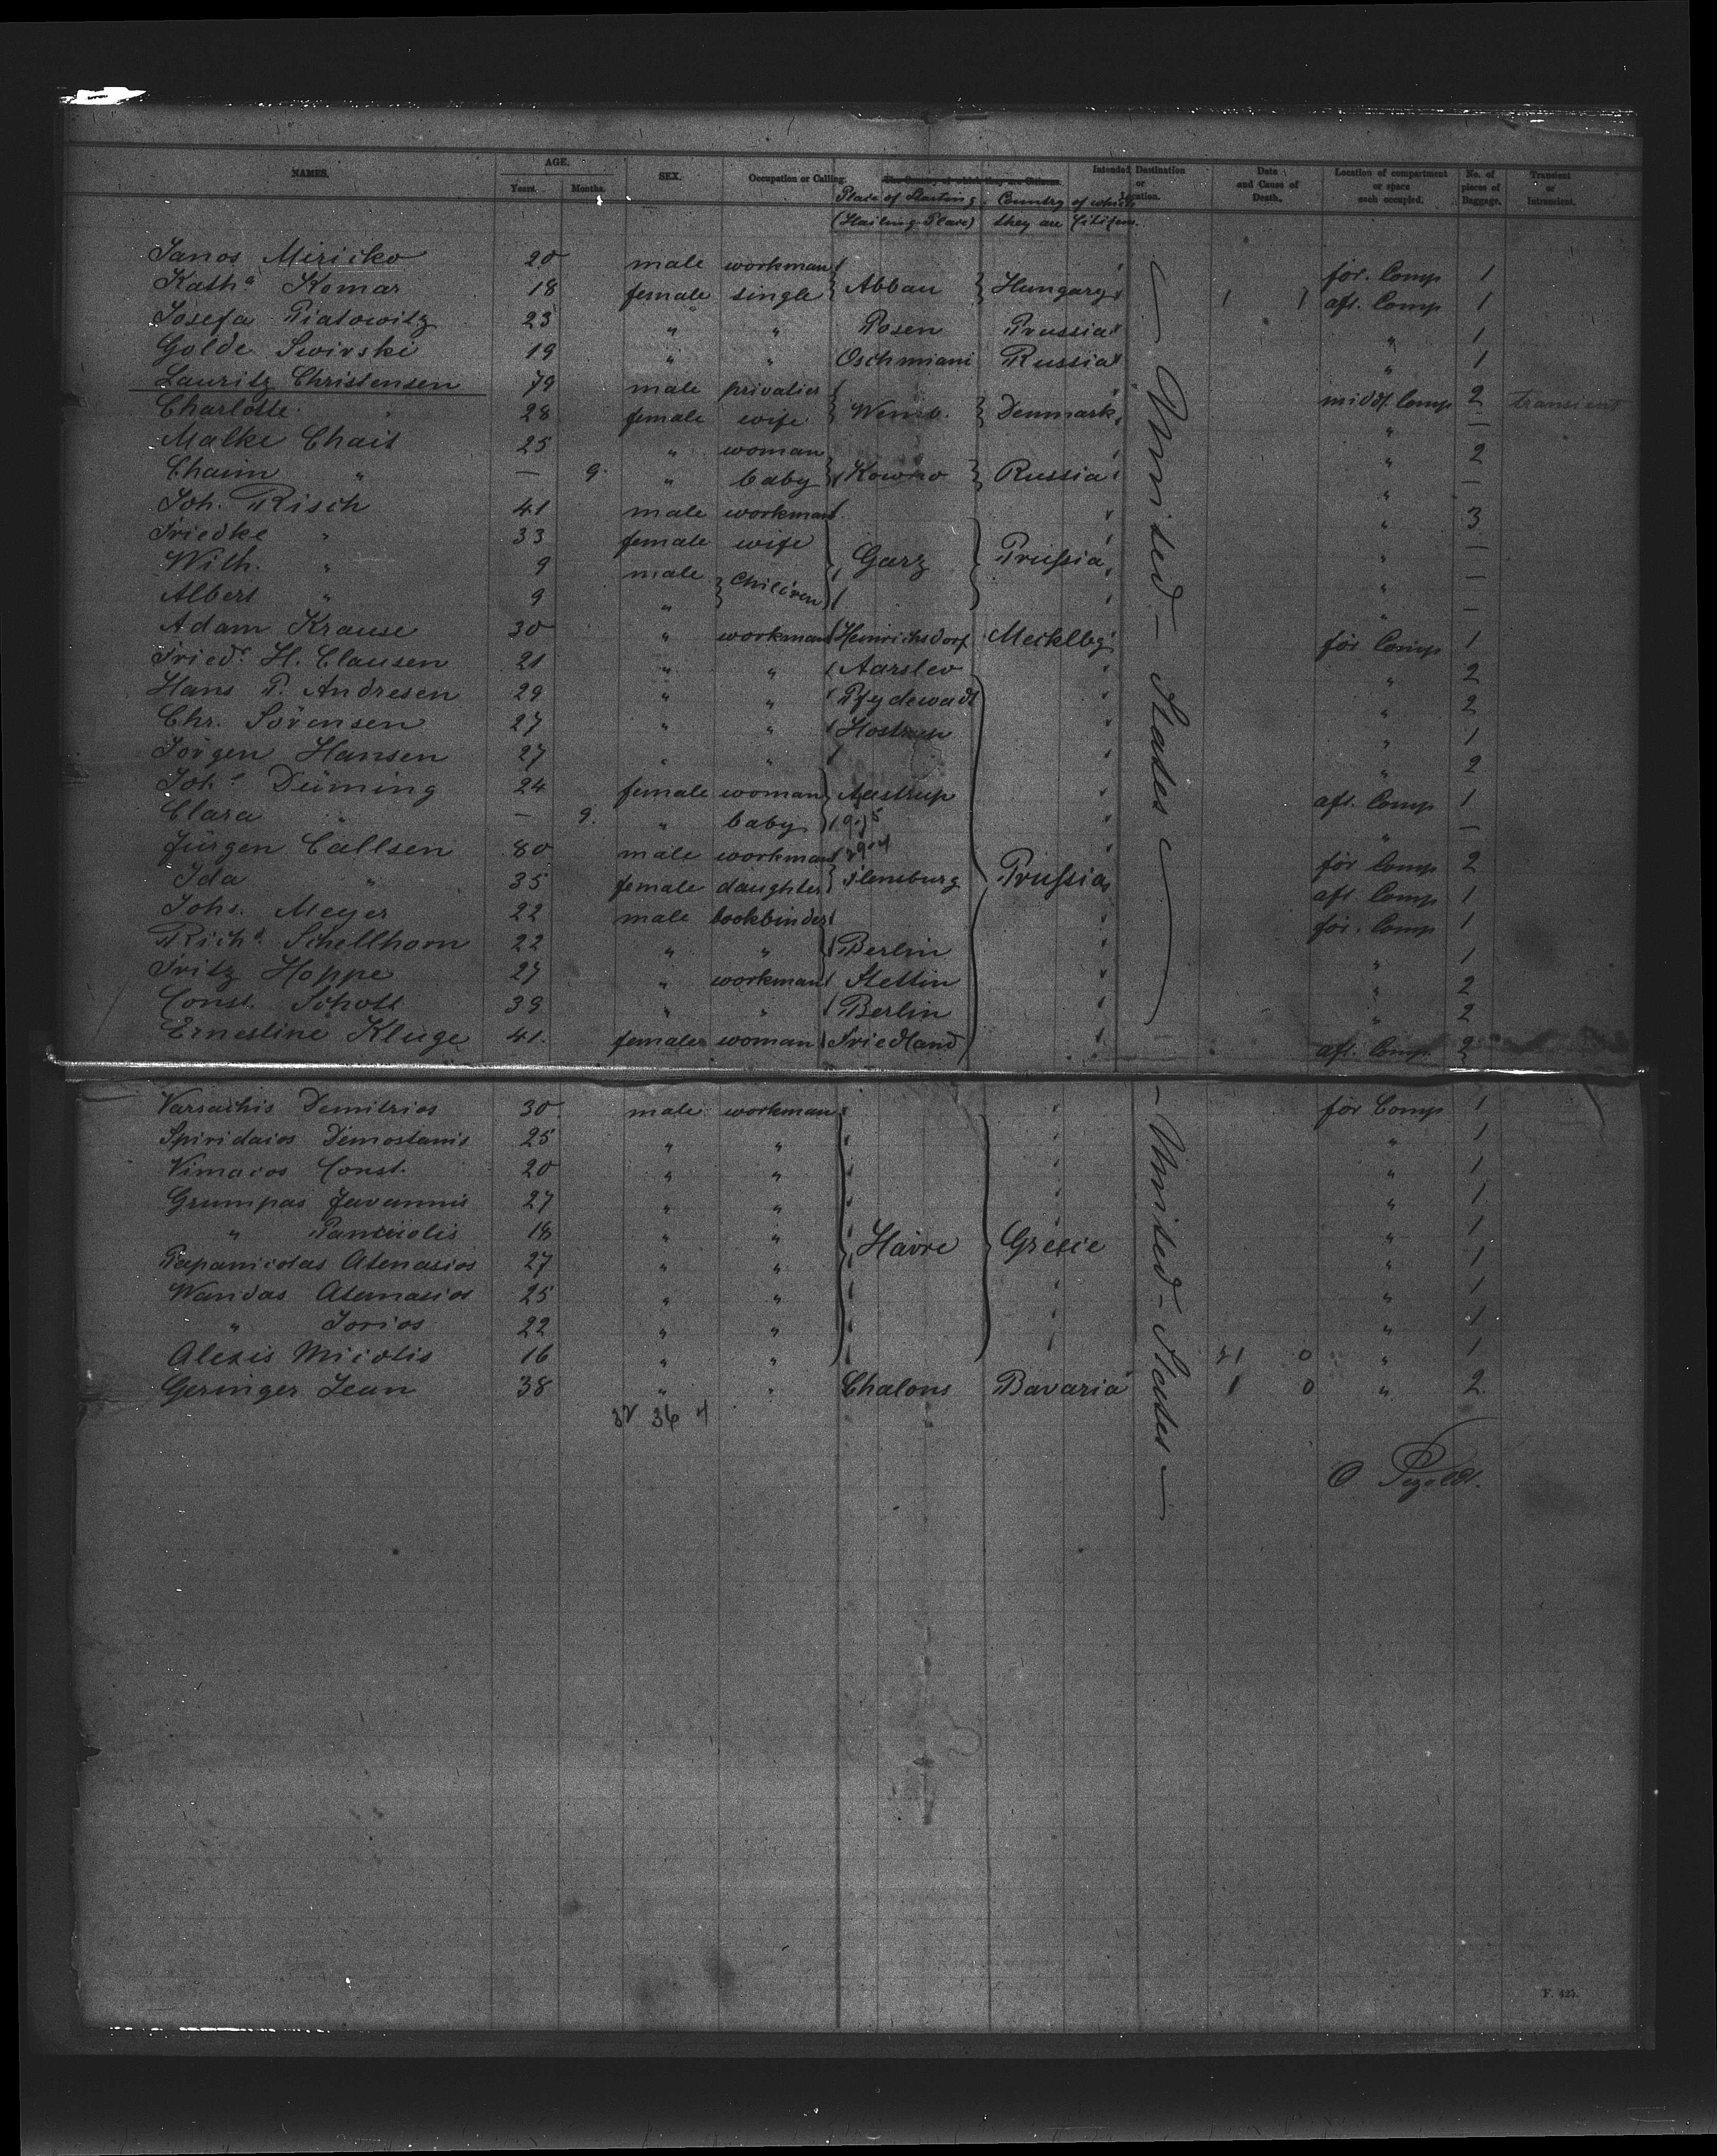 NAMES. AGE. SEX. Occupation or Calling. The Country of which they are Citizens. Intended Destination or Location. Date and Cause of Death. Location of compartment or space each occupied. No. of pieces of Baggage. Transient or Intransient.
Years. Months. Place of Starting (Hailing Place) Country of which they are Citizens.
Janos Miricko 20 male workman for. Comp 1
Kath.a Komar 18 female single Abbau Hungary 1 1 aft. Comp 1
Josefa Piatowitz 23 " " Posen Prussia " 1
Golde Swirski 19 " " Oschmiani Russia " 1
Lauritz Christensen 79 male privatier middl. Comp 2 transient
Charlotte " 28 female wife Denmark " —
Malke Chait 25 " woman " 2
Chaim " — 9. " baby Kowno Russia " —
Joh. Risch 41 male workman " 3
Friedke " 33 female wife " —
Wilh. " 9 male Children Garz Prussia " —
Albert " 9 " " —
Adam Krause 30 " workman Heinrichsdorf Mecklbg for Comp 1
Fried.r H. Clausen 21 " " Aarslev " 2
Hans P. Andresen 29 " " " 2
Chr. Sörensen 27 " " Hostrup " 1
Jörgen Hansen 27 " " " 2
Joh.e Deuming 24 female woman Aastrup aft. Comp 1
Clara " — 9. " baby " —
Jürgen Callsen 80 male workman for Comp 2
Ida " 35 female daughter Flensburg Prussia aft Comp 1
Johs. Meyer 22 male bookbinder for. Comp 1
Rich.d Schellhorn 22 " " Berlin " 1
Fritz Hoppe 27 " workman Stettin " 2
Const. Schott 39 " " Berlin " 2
Ernestine Kluge 41. female woman Friedland aft. Comp. 2
— United-States —
Varsachis Demitrios 30 male workman for Comp 1
Spiridaios Demostanis 25 " " " 1
Vimacos Const. 20 " " " 1
Grumpas Javannis 27 " " " 1
" 18 " " Havre Grecie " 1
Papanicolas Atenasios 27 " " " 1
Wandas Atanasios 25 " " " 1
" Jorios 22 " " " 1
Alexis Miciolis 16 " " 0 " 1
Geringer Jean 38 " " Chalons Bavaria 1 0 " 2.
— United-States —
32 36 4
O Pezoldt.
F. 425.